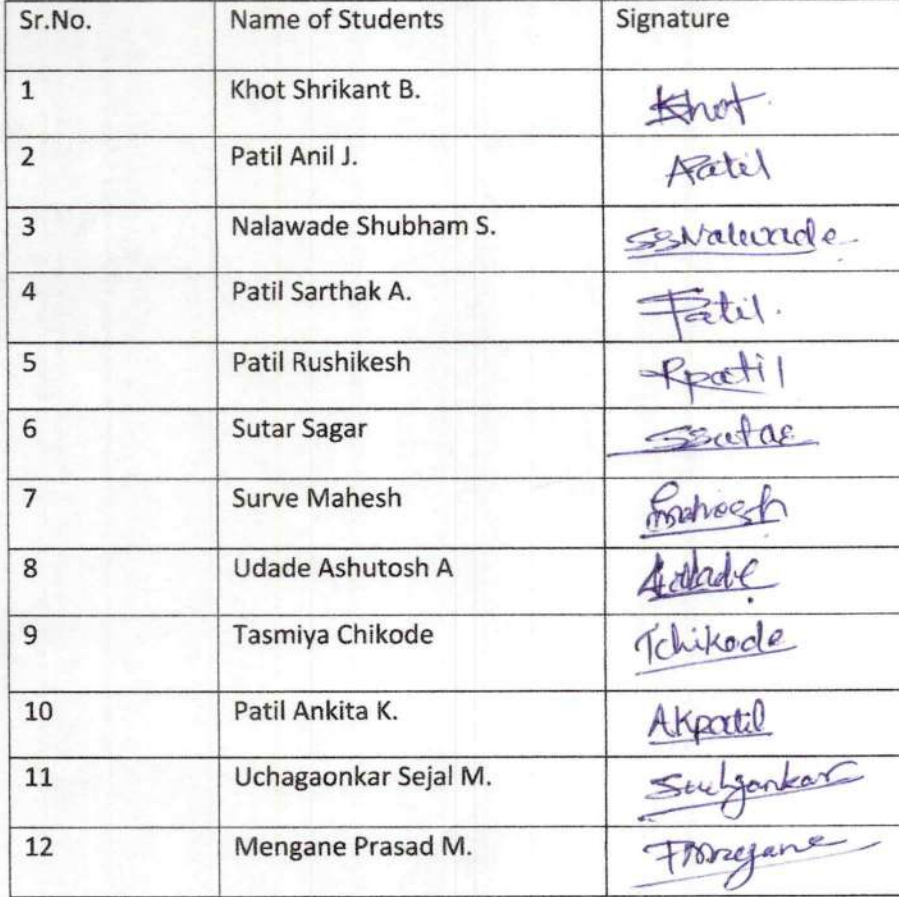 Sr.No. Name of Students Signature
1 Khot Shrikant B. Khot
2 Patil Anil J. APatil
3 Nalawade Shubham S. SSNalwade
4 Patil Sarthak A. Patil.
5 Patil Rushikesh Rpatil
6 Sutar Sagar SSutar
7 Surve Mahesh
8 Udade Ashutosh A AUdade
9 Tasmiya Chikode Tchikode
10 Patil Ankita K. AKpatil
11 Uchagaonkar Sejal M.
12 Mengane Prasad M.